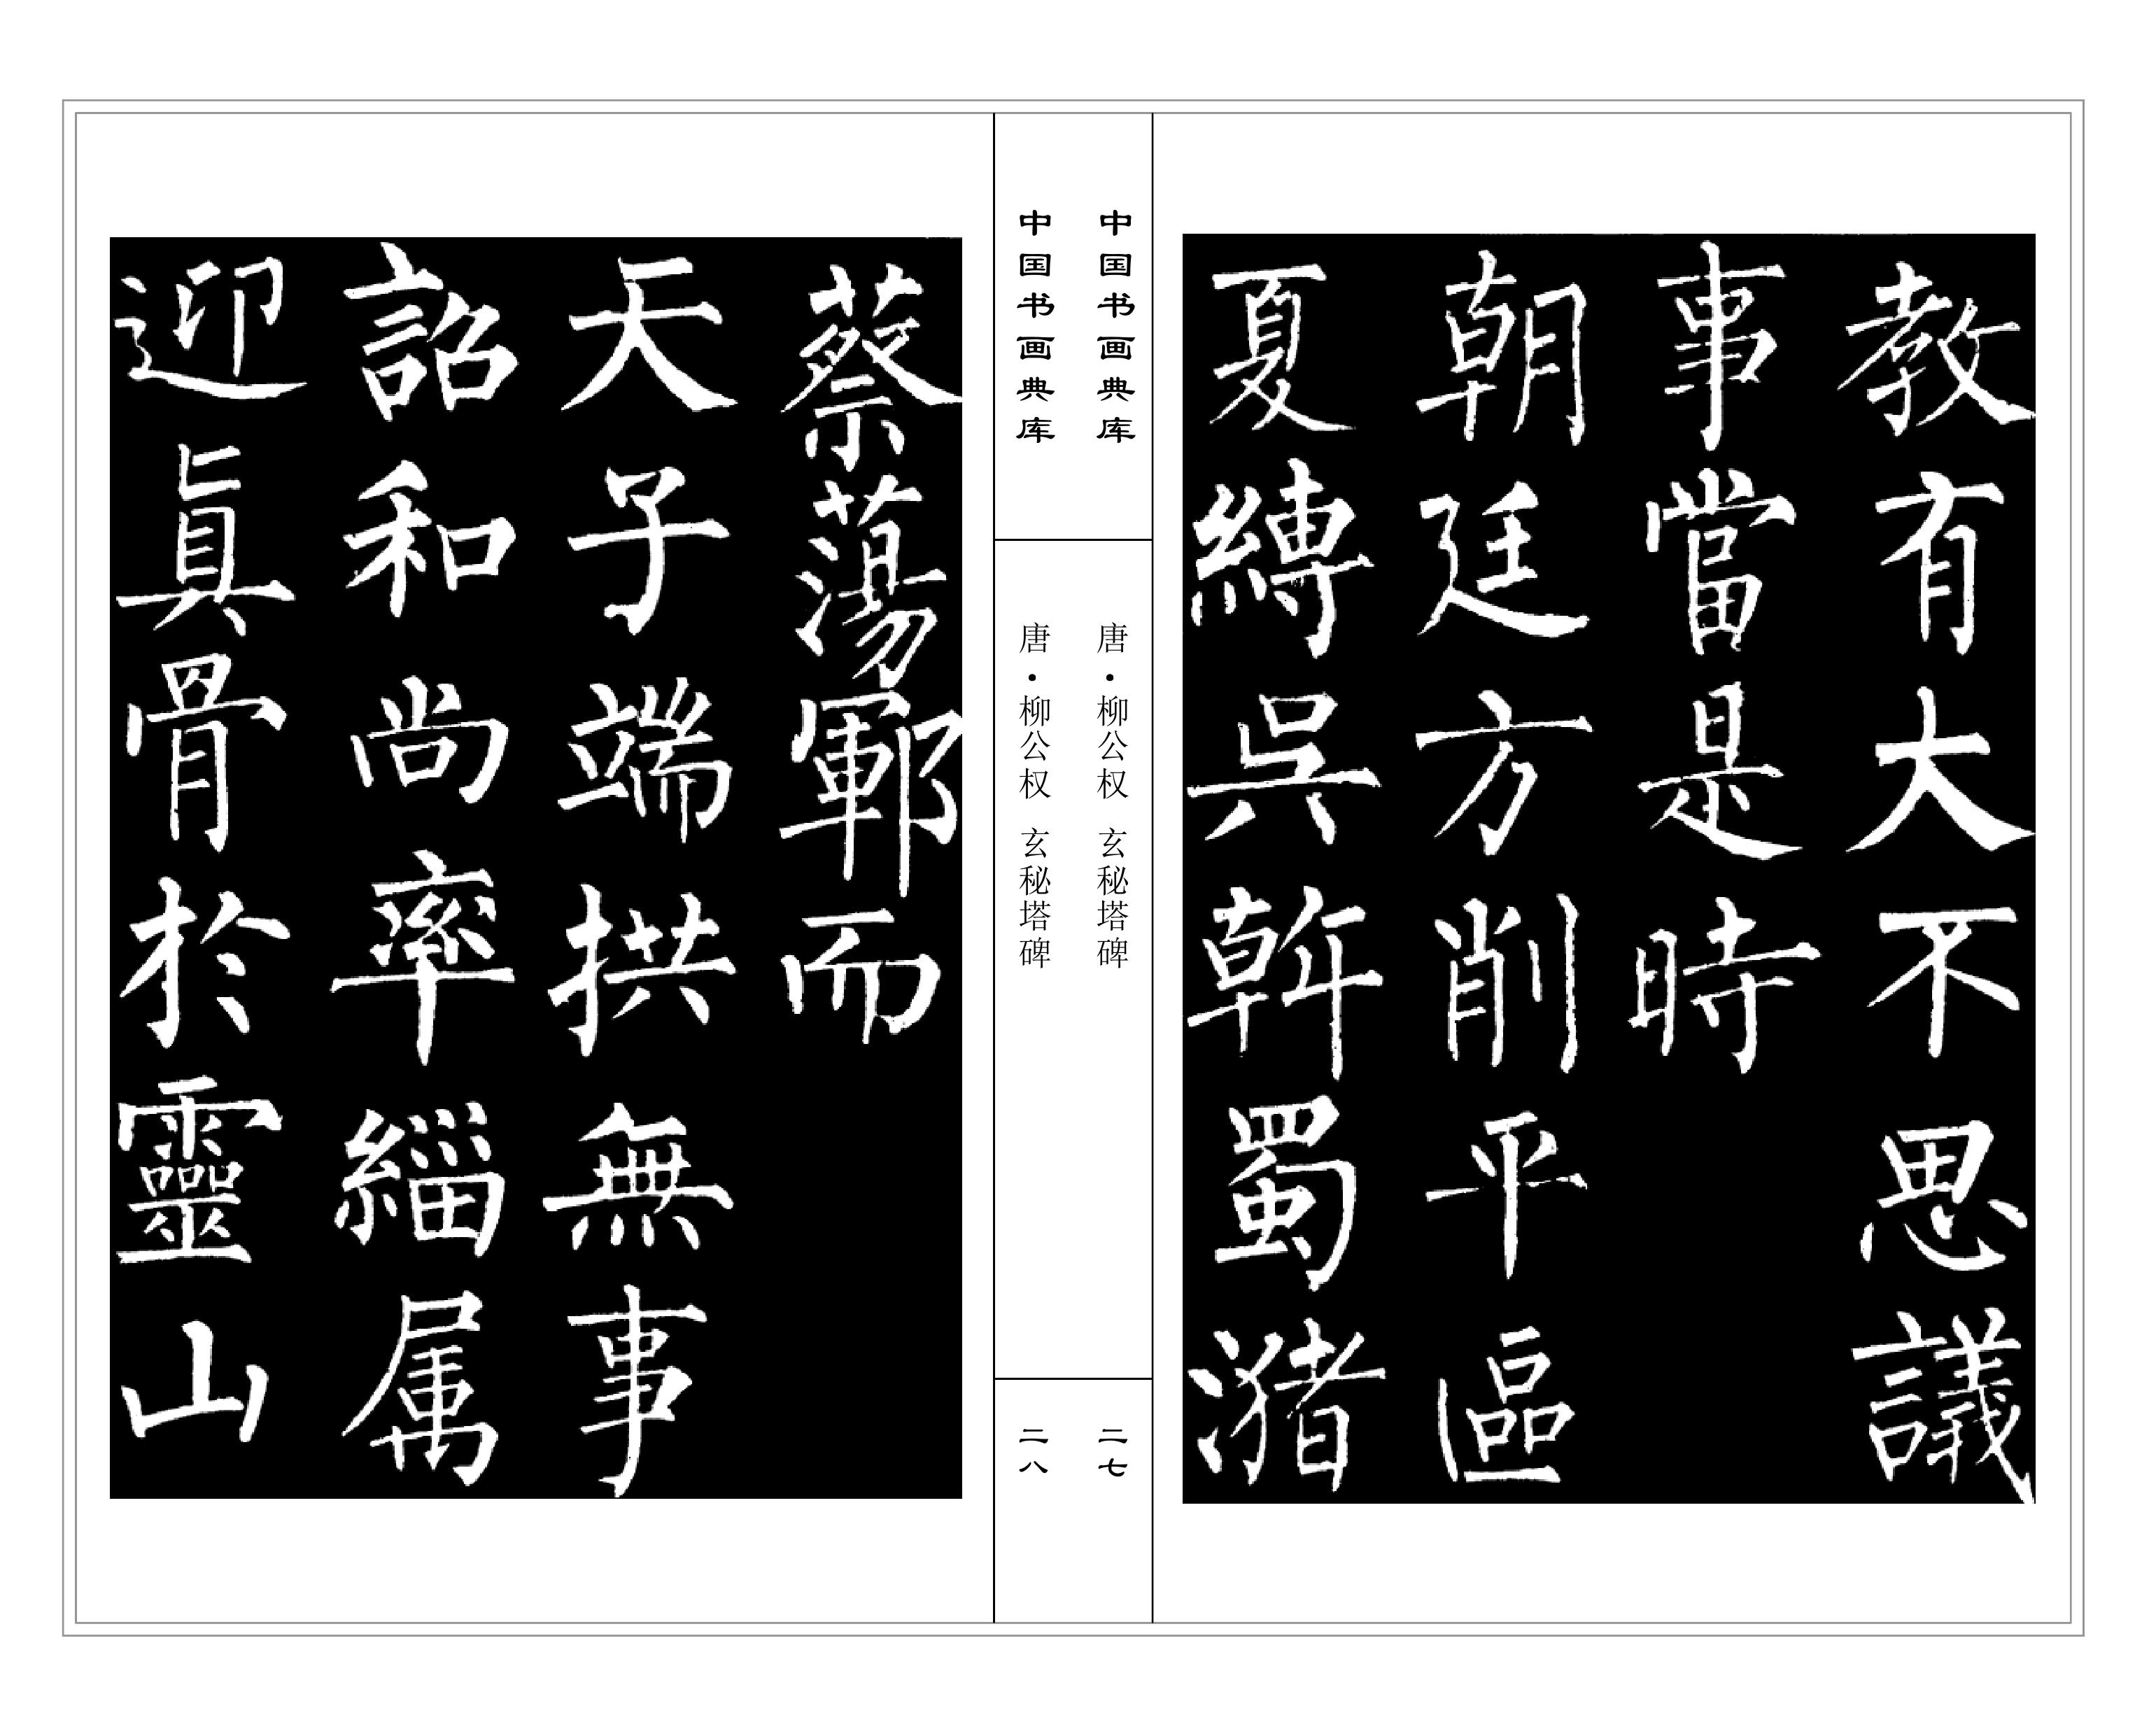 教有大不思議
事當是時
朝廷方削平區
夏縛吳斡蜀瀦
中国书画典库
唐·柳公权 玄秘塔碑
二七
中国书画典库
唐·柳公权 玄秘塔碑
二八
蔡蕩鄆而
天子端拱無事
詔和尚率緇属
迎真骨於靈山